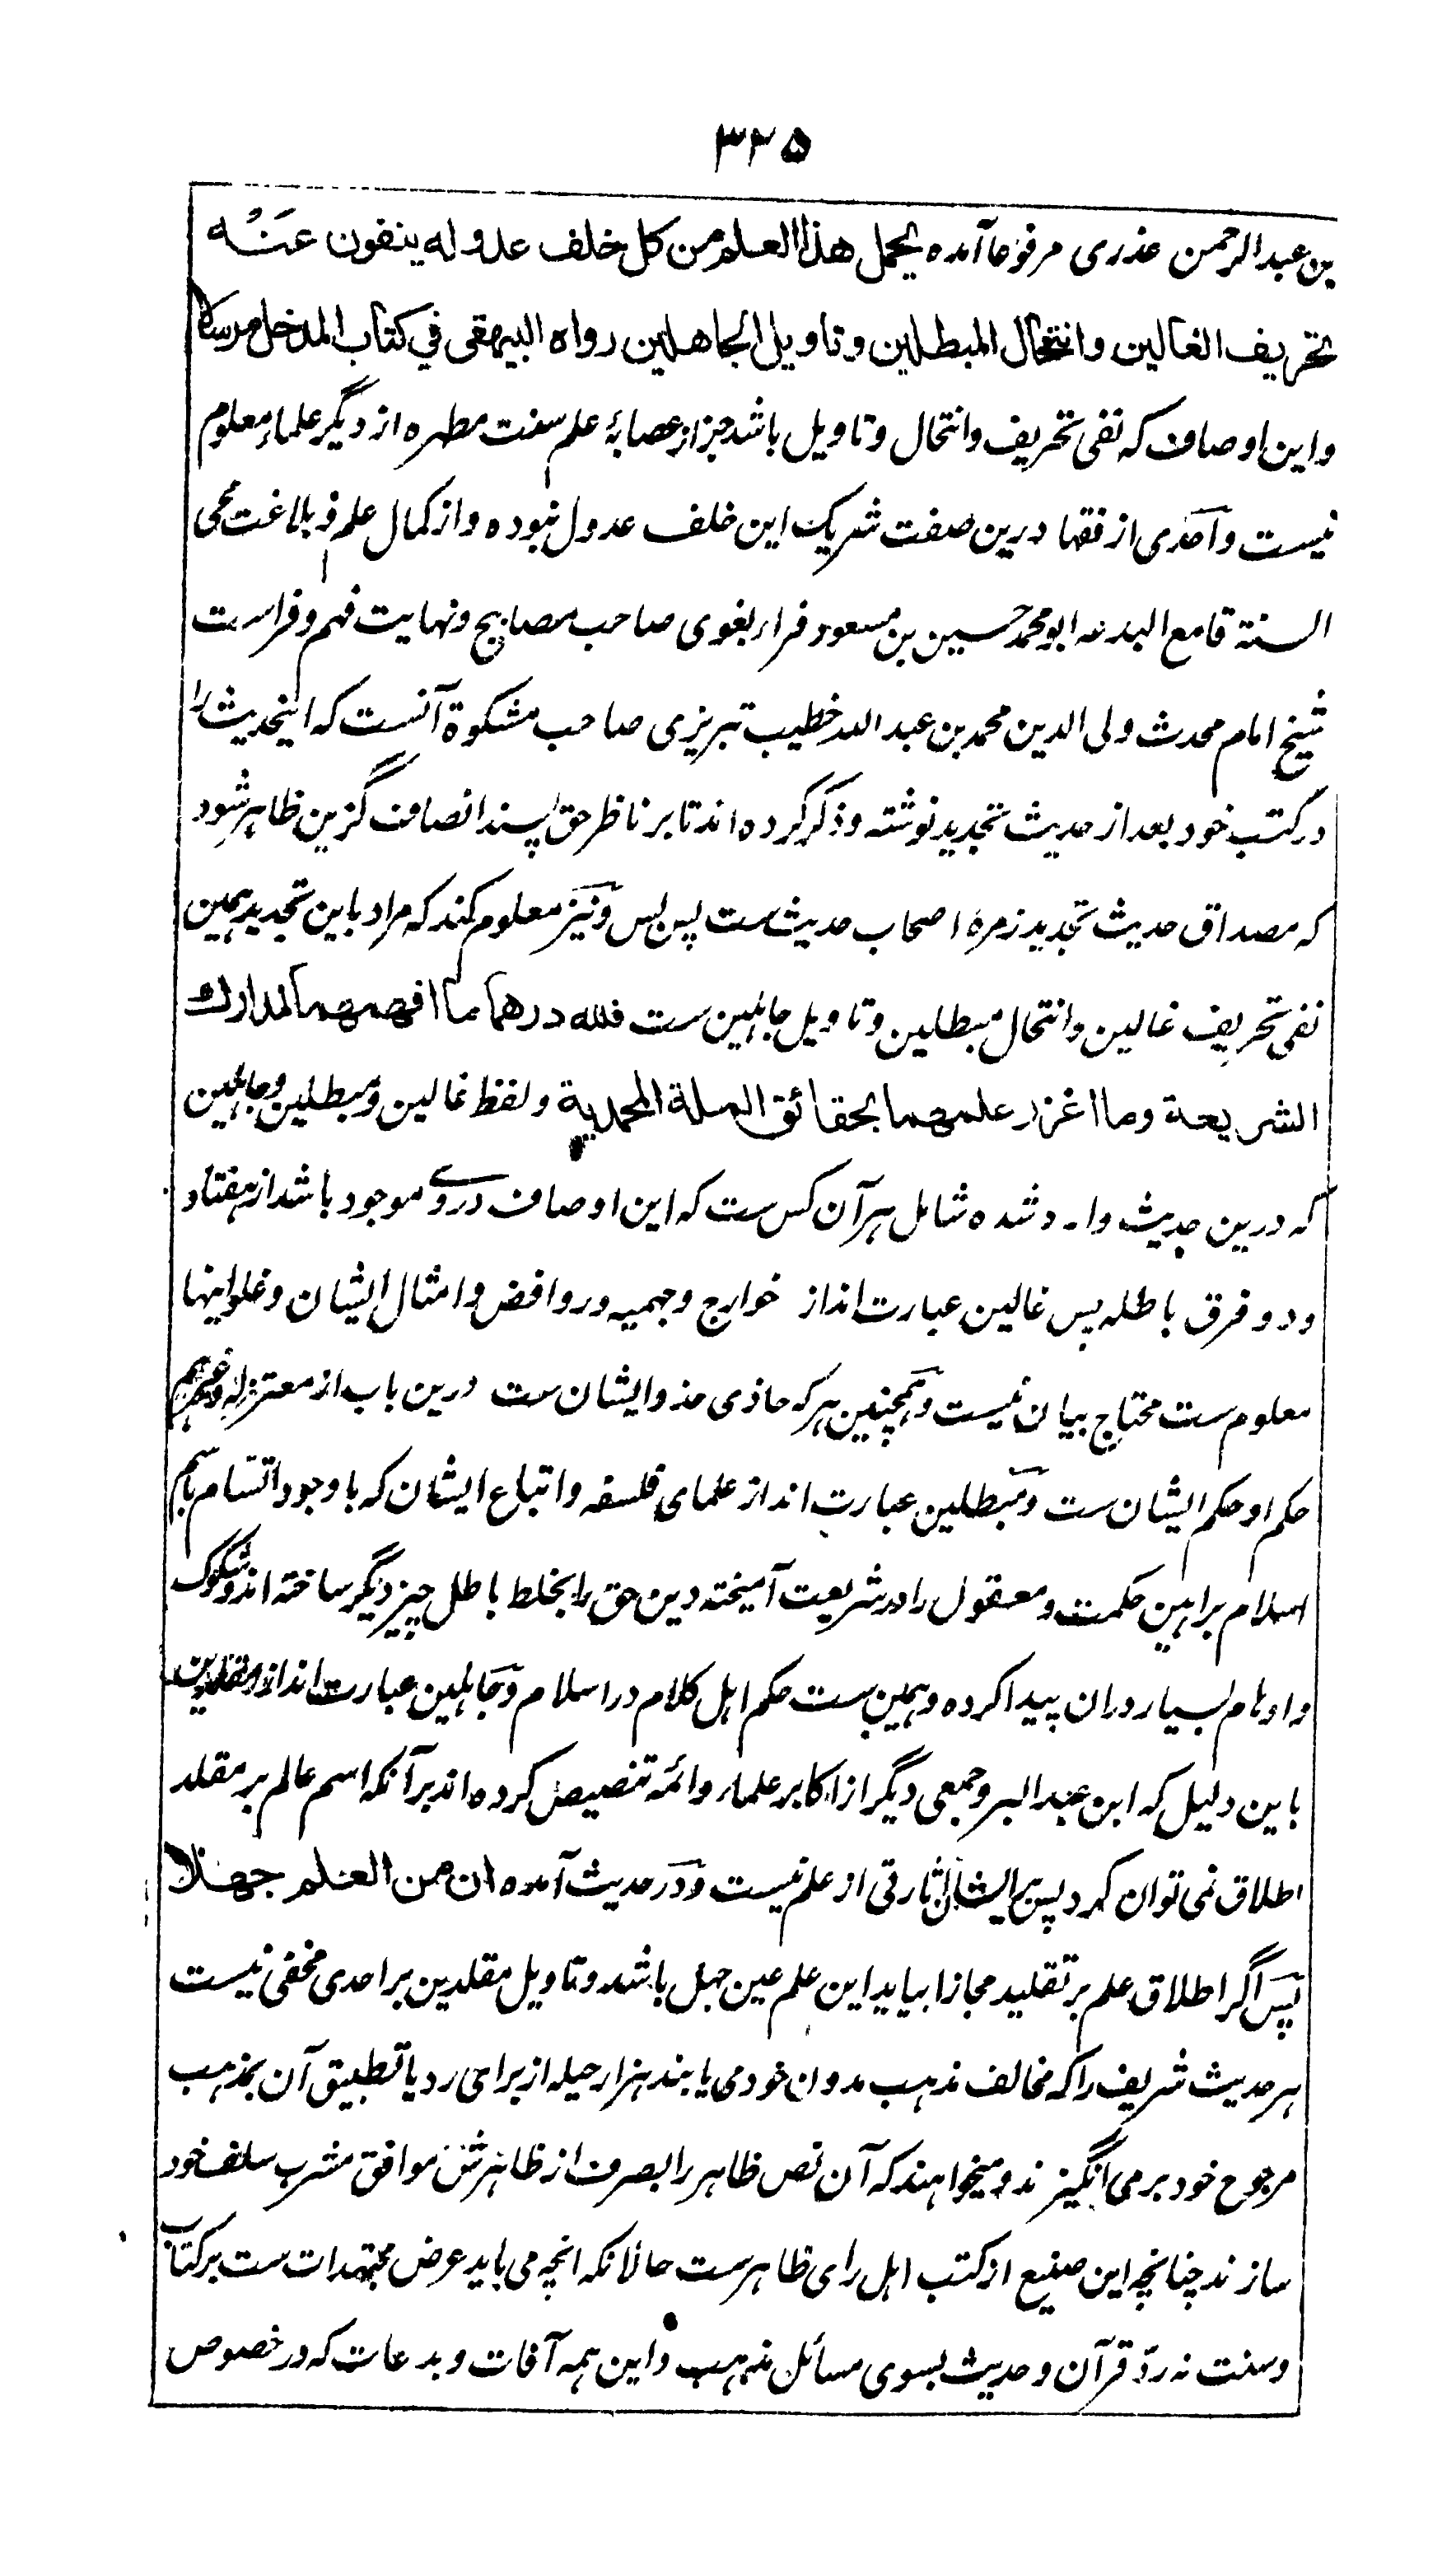 ۳۳۵
بن عبدالرحمن عذری مرفوعا آمده یحمل هذا العلم من کل خلف عدوله ینفون عنه
تحریف الغالین وانتحال المبطلین وتاویل الجاهلین رواه البیهقی في کتاب المدخل مرسلا
واین اوصاف که نفی تحریف وانتحال وتاویل باشد جز از عصابۀ علم سنت مطهره از دیگر علماء معلوم
نیست واحدی از فقها درین صفت شریک این خلف عدول نبوده واز کمال علم و بلاغت محی
السنة قامع البدعه ابو محمد حسین بن مسعود فراء بغوی صاحب مصابیح ونهایت فهم و فراست
شیخ امام محدث ولی الدین محمد بن عبد الله خطیب تبریزی صاحب مشکوة آنست که اینحدیث را
در کتب خود بعد از حدیث تجدید نوشته وذکر کرده اند تا بر ناظر حق پسند انصاف گزین ظاهر شود
که مصداق حدیث تجدید زمرۀ اصحاب حدیث ست پس بس ونیز معلوم کند که مراد باین تجدید همین
نفی تحریف غالین وانتحال مبطلین وتاویل جاهلین ست فلله درهما ما افهمهما لمدارك
الشریعة وما اغزر علمهما بحقائق الملة المحمدیة ولفظ غالین ومبطلین وجاهلین
که درین حدیث وارد شده شامل هر آن کس ست که این اوصاف در وی موجود باشد از هفتاد
ودو فرق باطله پس غالین عبارت اند از خوارج وجهمیه وروافض وامثال ایشان وغلو اینها
معلوم ست محتاج بیان نیست وهمچنین هر که حاذی حذو ایشان ست درین باب از معتزله وغیرهم
حکم او حکم ایشان ست ومبطلین عبارت اند از علمای فلسفه واتباع ایشان که با وجود اتسام باسم
اسلام براهین حکمت ومعقول را در شریعت آمیخته دین حق را بخلط باطل چیز دیگر ساخته اند وشکوک
واوهام بسیار دران پیدا کرده وهمین ست حکم اهل کلام در اسلام وجاهلین عبارت اند از مقلدین
باین دلیل که ابن عبد البر وجمعی دیگر از اکابر علماء وائمه تنصیص کرده اند بر آنکه اسم عالم بر مقلد
اطلاق نمی توان کرد پس ایشان اثارتی از علم نیست ودر حدیث آمده ان من العلم جهلا
پس اگر اطلاق علم بر تقلید مجازا بیاید این علم عین جهل باشد وتاویل مقلدین بر احدی مخفی نیست
هر حدیث شریف را که مخالف مذهب مدون خود می یابند هزار حیله از برای رد یا تطبیق آن بمذهب
مرجوح خود بر می انگیزند ومیخواهند که آن نص ظاهر را بصرف از ظاهرش موافق مشرب سلف خود
سازند چنانچه این صنیع از کتب اهل رای ظاهرست حالانکه انچه می باید عرض مجتهدات ست بر کتاب
وسنت نه ردّ قرآن وحدیث بسوی مسائل مذهب واین همه آفات وبدعات که در خصوص